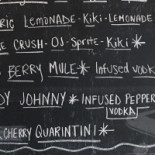 RIC LEMONADE-KIKI-LEMONADE
E CRUSH-OJ-SPRITE-KIKI*
BERRY MULE* INFUSED VODK
DY JOHNNY* INFUSED PEPPER
VODKA
CHERRY QUARINTINI*